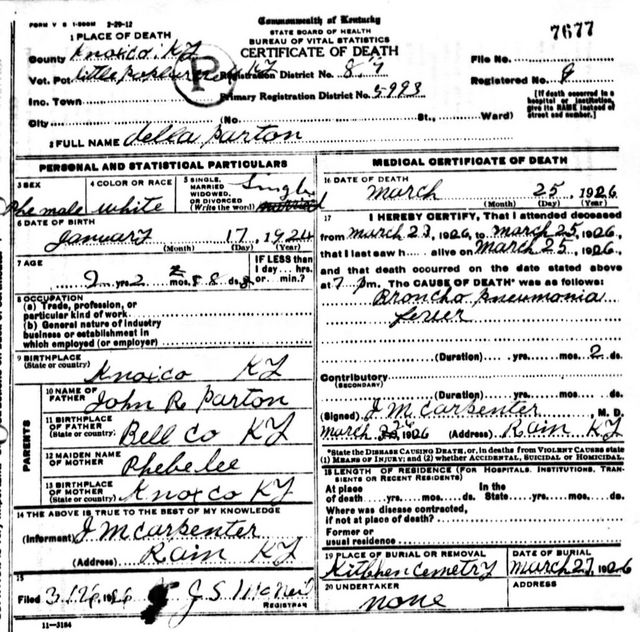 FORM V S 1-500M 2-29-12
Commonwealth of Kentucky
STATE BOARD OF HEALTH
BUREAU OF VITAL STATISTICS
CERTIFICATE OF DEATH
7677
1 PLACE OF DEATH
County Knoxico KY
Vot. Pct Little KY
P
Registration District No. 87
File No.
Inc. Town
Primary Registration District No. 5993
Registered No. 9
City (No. St., Ward)
[If death occurred in a hospital or institution, give its NAME instead of street and number.]
2 FULL NAME della parton
PERSONAL AND STATISTICAL PARTICULARS
3 SEX
Phemale
4 COLOR OR RACE
white
5 SINGLE, MARRIED WIDOWED, OR DIVORCED (Write the word)
Single
6 DATE OF BIRTH
January 17, 1924
(Month) (Day) (Year)
7 AGE
2 yrs. 2 mos. 8 ds.
IF LESS than 1 day... hrs. or min.?
8 OCCUPATION
(a) Trade, profession, or particular kind of work
(b) General nature of industry business or establishment in which employed (or employer)
9 BIRTHPLACE
(State or country)
Knoxico KY
PARENTS
10 NAME OF FATHER
John R parton
11 BIRTHPLACE OF FATHER
(State or country)
Bell co KY
12 MAIDEN NAME OF MOTHER
Phebe lee
13 BIRTHPLACE OF MOTHER
(State or country)
Knoxico KY
14 THE ABOVE IS TRUE TO THE BEST OF MY KNOWLEDGE
(Informant) J M carpenter
(Address) Rain KY
15
Filed 3/26 1926 J. S. McNeil
REGISTRAR
11-3184
MEDICAL CERTIFICATE OF DEATH
16 DATE OF DEATH
march 25, 1926
(Month) (Day) (Year)
17 I HEREBY CERTIFY, That I attended deceased
from march 23, 1926, to march 25, 1926,
that I last saw h alive on march 25, 1926,
and that death occurred on the date stated above
at 7 pm. The CAUSE OF DEATH* was as follows:
Broncho pneumonia
fever
(Duration) yrs. mos. 2 ds.
Contributory
(SECONDARY)
(Duration) yrs. mos. ds.
(Signed) J M carpenter, M. D.
march 26, 1926 (Address) Rain KY
*State the DISEASE CAUSING DEATH, or, in deaths from VIOLENT CAUSES state (1) MEANS OF INJURY; and (2) whether ACCIDENTAL, SUICIDAL or HOMICIDAL.
18 LENGTH OF RESIDENCE (FOR HOSPITALS, INSTITUTIONS, TRANSIENTS OR RECENT RESIDENTS)
At place of death yrs. mos. ds.
In the State yrs. mos. ds.
Where was disease contracted, if not at place of death?
Former or usual residence
19 PLACE OF BURIAL OR REMOVAL
Kitbhen cemetry
DATE OF BURIAL
march 27, 1926
20 UNDERTAKER
none
ADDRESS